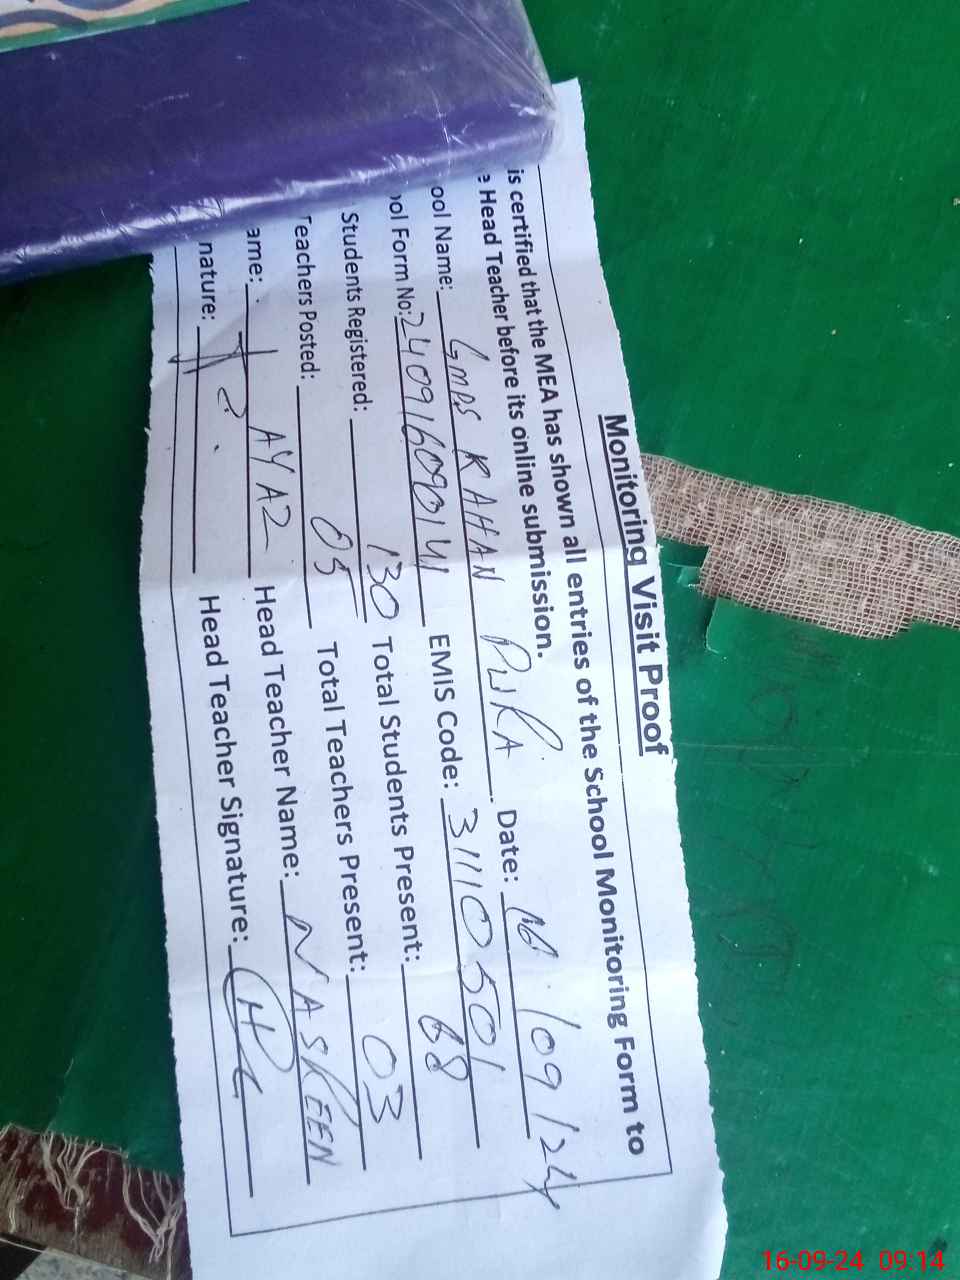 Monitoring Visit Proof
is certified that the MEA has shown all entries of the School Monitoring Form to
e Head Teacher before its online submission.
ool Name: GMPS KAHAN PURA Date: 16/09/24
ool Form No: 24091609014 EMIS Code: 31110501
Students Registered: 130 Total Students Present: 68
Teachers Posted: 05 Total Teachers Present: 03
ame: AYAZ Head Teacher Name: NASREEN
nature: Head Teacher Signature:
16-09-24 09:14